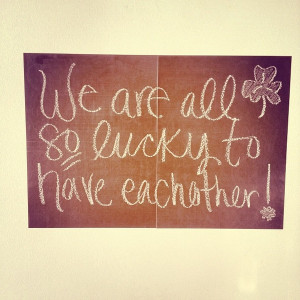 We are all
so lucky to
have eachother!